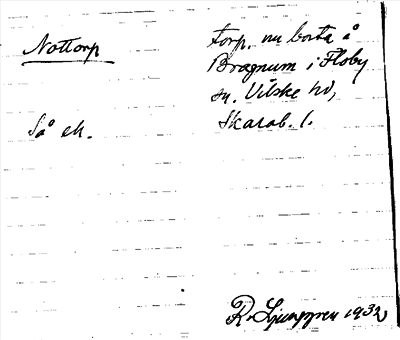 Nottorp
Så ek.
torp, nu borta å
Bragnum i Floby
sn. Vilske hd,
Skarab. l.
R. Ljunggren 1932